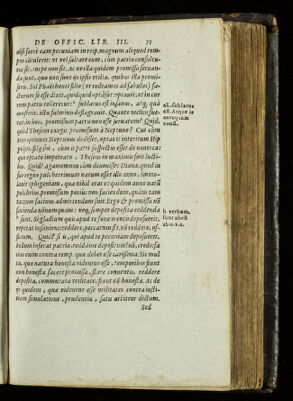 DE OFFIC. LIB. III. 71
nisi forte eam pecuniam in reip. magnum aliquod tem-
pus contulerit: ut vel saltare eum, cum patria consulue-
rit: sic ne
da sunt, quae non sunt ijs ipsis utilia, quibus illa promi-
seris. Sol Phaëthonti filio (ut redeamus ad fabulas) fa-
cturum se esse dixit, quicquid optasset. optavit, ut in cur-
rum patris tolleretur: sublatus est insanus, atq; quà
constitit, ictu fulminis deflagravit. Quanto melius fue-
rat in hoc, promissum patris non esse servatum? Quid?
quòd Theseus exegit promissum à Neptuno? Cui cum
tres optiones Neptunus dedisset, optavit interitum Hip
polyti filij sui, cum is patri suspectus esset de noverca:
quo optato impetrato, Theseus in maximis fuit lucti-
bus. Quid? Agamemnon cùm devovisset Dianæ, quod in
suo regno pulcherrimum natum esset illo anno, immo-
lavit Iphigeniam, qua nihil erat eo quidem anno natū
pulchrius. promissum potiùs non faciendum, quàm tam
tetrum facinus admittendum fuit. Ergo & promissa nō
facienda nōnunquam: neq; semper deposita reddenda
sunt. Si gladium quis apud te sana mente deposuerit,
repetat insaniens: reddere, peccatum sit. nō reddere, of-
ficium. Quid? si is, qui apud te pecuniam deposuerit,
bellum inferat patriæ. reddásne depositum? nō, credo. fa-
cias enim contra remp. quæ debet esse carissima. Sic mul
ta, quæ natura honesta videntur esse, temporibus fiunt
non honesta. facere promissa, stare conventis, reddere
deposita, commutata utilitate, fiunt nō honesta. Ac de
ijs quidem, quæ videntur esse utilitates contra iusti-
tiam simulatione, prudentiæ, satis arbitror dictum.
Sed
al. sublatus
est. Atque is
antequam
const.
l. verbum,
sunt abest
ab o.v.c.